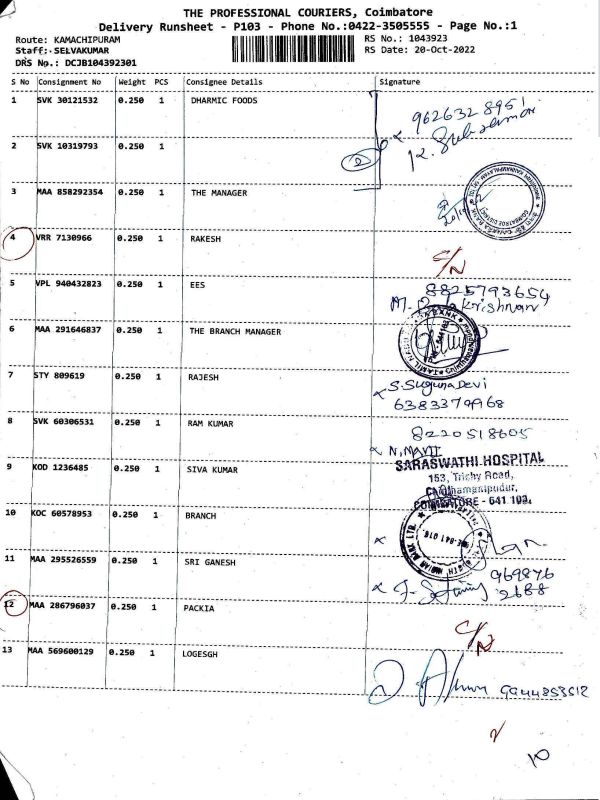 THE PROFESSIONAL COURIERS, Coimbatore
Delivery Runsheet - P103 - Phone No.:0422-3505555 - Page No.:1
Route: KAMACHIPURAM RS No.: 1043923
Staff: SELVAKUMAR RS Date: 20-Oct-2022
DRS No.: DCJB104392301
S No Consignment No Weight PCS Consignee Details Signature
1 SVK 30121532 0.250 1 DHARMIC FOODS
9626328951
2 SVK 10319793 0.250 1
2
3 MAA 858292354 0.250 1 THE MANAGER
4 VRR 7130966 0.250 1 RAKESH
C/N
5 VPL 940432823 0.250 1 EES
8825793654
Krishnan
6 MAA 291646837 0.250 1 THE BRANCH MANAGER
7 STY 809619 0.250 1 RAJESH
S. Suguna Devi
6383379968
8 SVK 60306531 0.250 1 RAM KUMAR
8220518605
9 KOD 1236485 0.250 1 SIVA KUMAR
SARASWATHI HOSPITAL
153, Trichy Road,
COIMBATORE - 641 103.
10 KOC 60578953 0.250 1 BRANCH
11 MAA 295526559 0.250 1 SRI GANESH
969876
2688
12 MAA 286796037 0.250 1 PACKIA
C/N
13 MAA 569600129 0.250 1 LOGESGH
9944853612
10